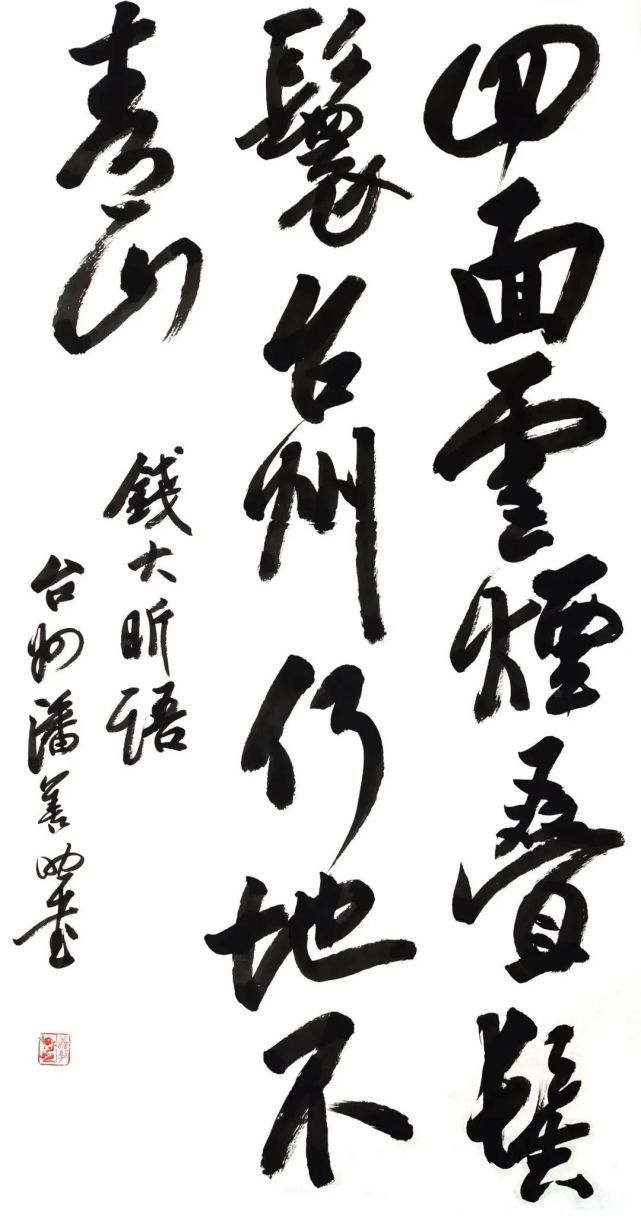 四面雲煙叠髻
鬟台州何地不
青山
錢大昕語
台州潘善助書